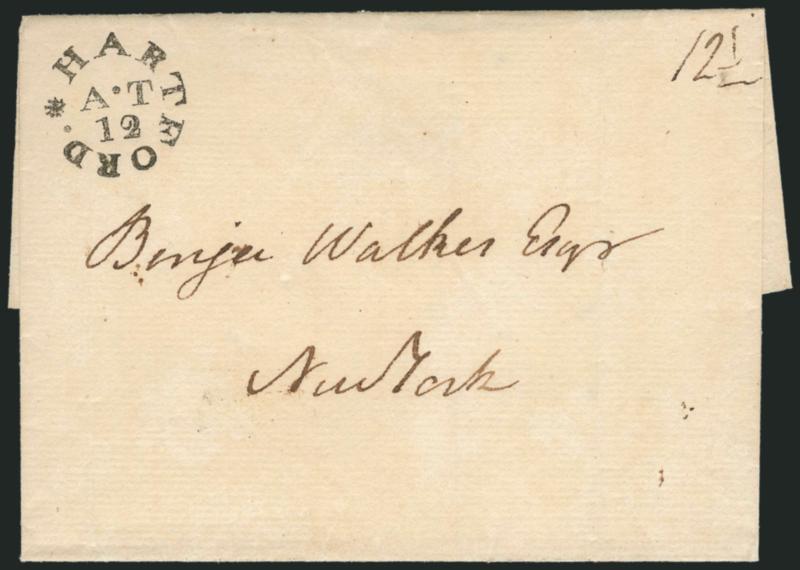 * HARTFORD.
A·T
12
12½
Benja Walker Esqr
New York